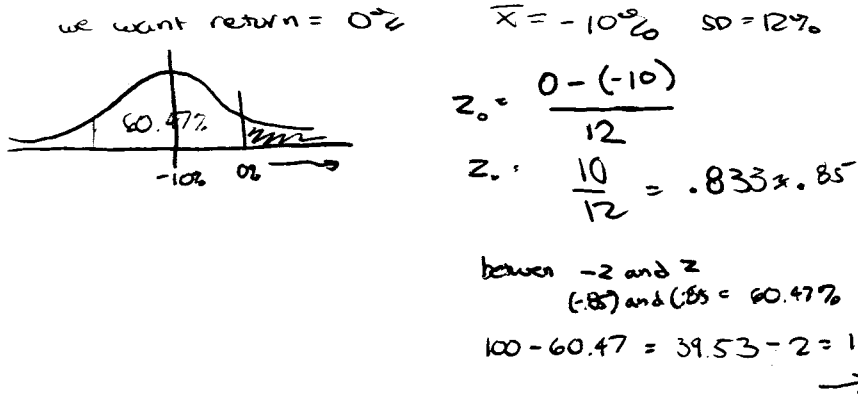 we want return = 0%
x̄ = -10% SD = 12%
60.47%
-10% 0%
z₀ = 0 - (-10) / 12
z₀ = 10 / 12 = .833 ≈ .85
between -z and z
(-.85) and (.85 = 60.47%
100 - 60.47 = 39.53 ÷ 2 = 1